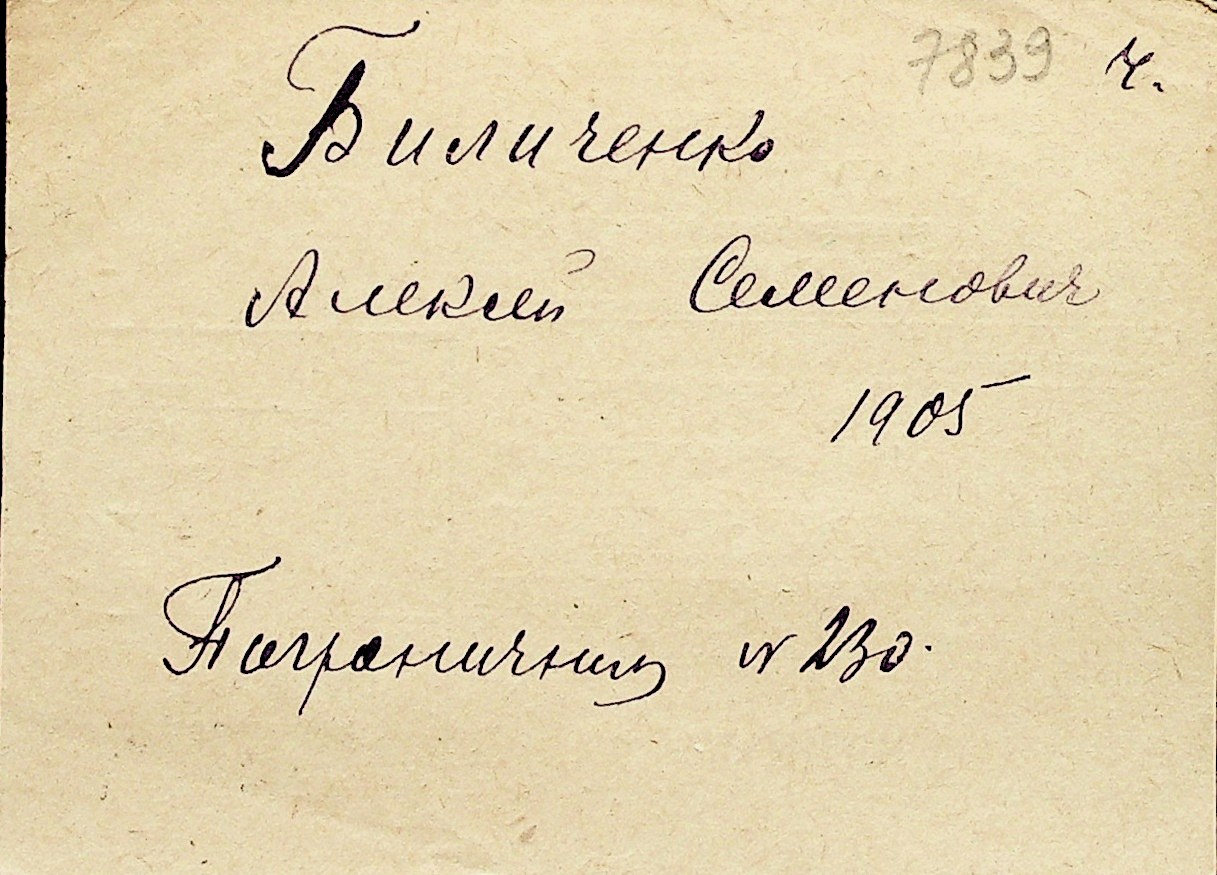 7839 ч.
Биличенко
Алексей Семенович
1905
Пограничник № 230.